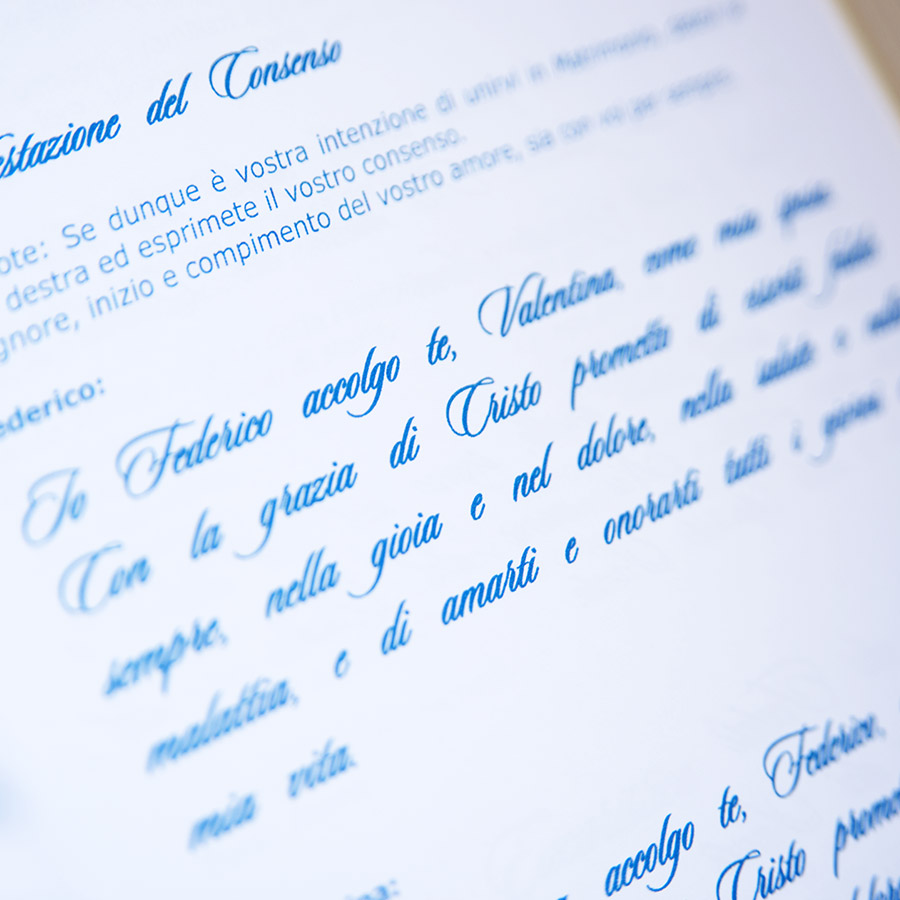 estazione del Consenso
ote: Se dunque è vostra intenzione di unirvi in Matrimonio,
destra ed esprimete il vostro consenso.
gnore, inizio e compimento del vostro amore, sia con voi per sempre.
ederico:
Io Federico accolgo te, Valentina, come mia sposa.
Con la grazia di Cristo prometto di esserti fedele
sempre, nella gioia e nel dolore, nella salute e nella
malattia, e di amarti e onorarti tutti i giorni
mia vita.
ina:
accolgo te, Federico,
Cristo prome